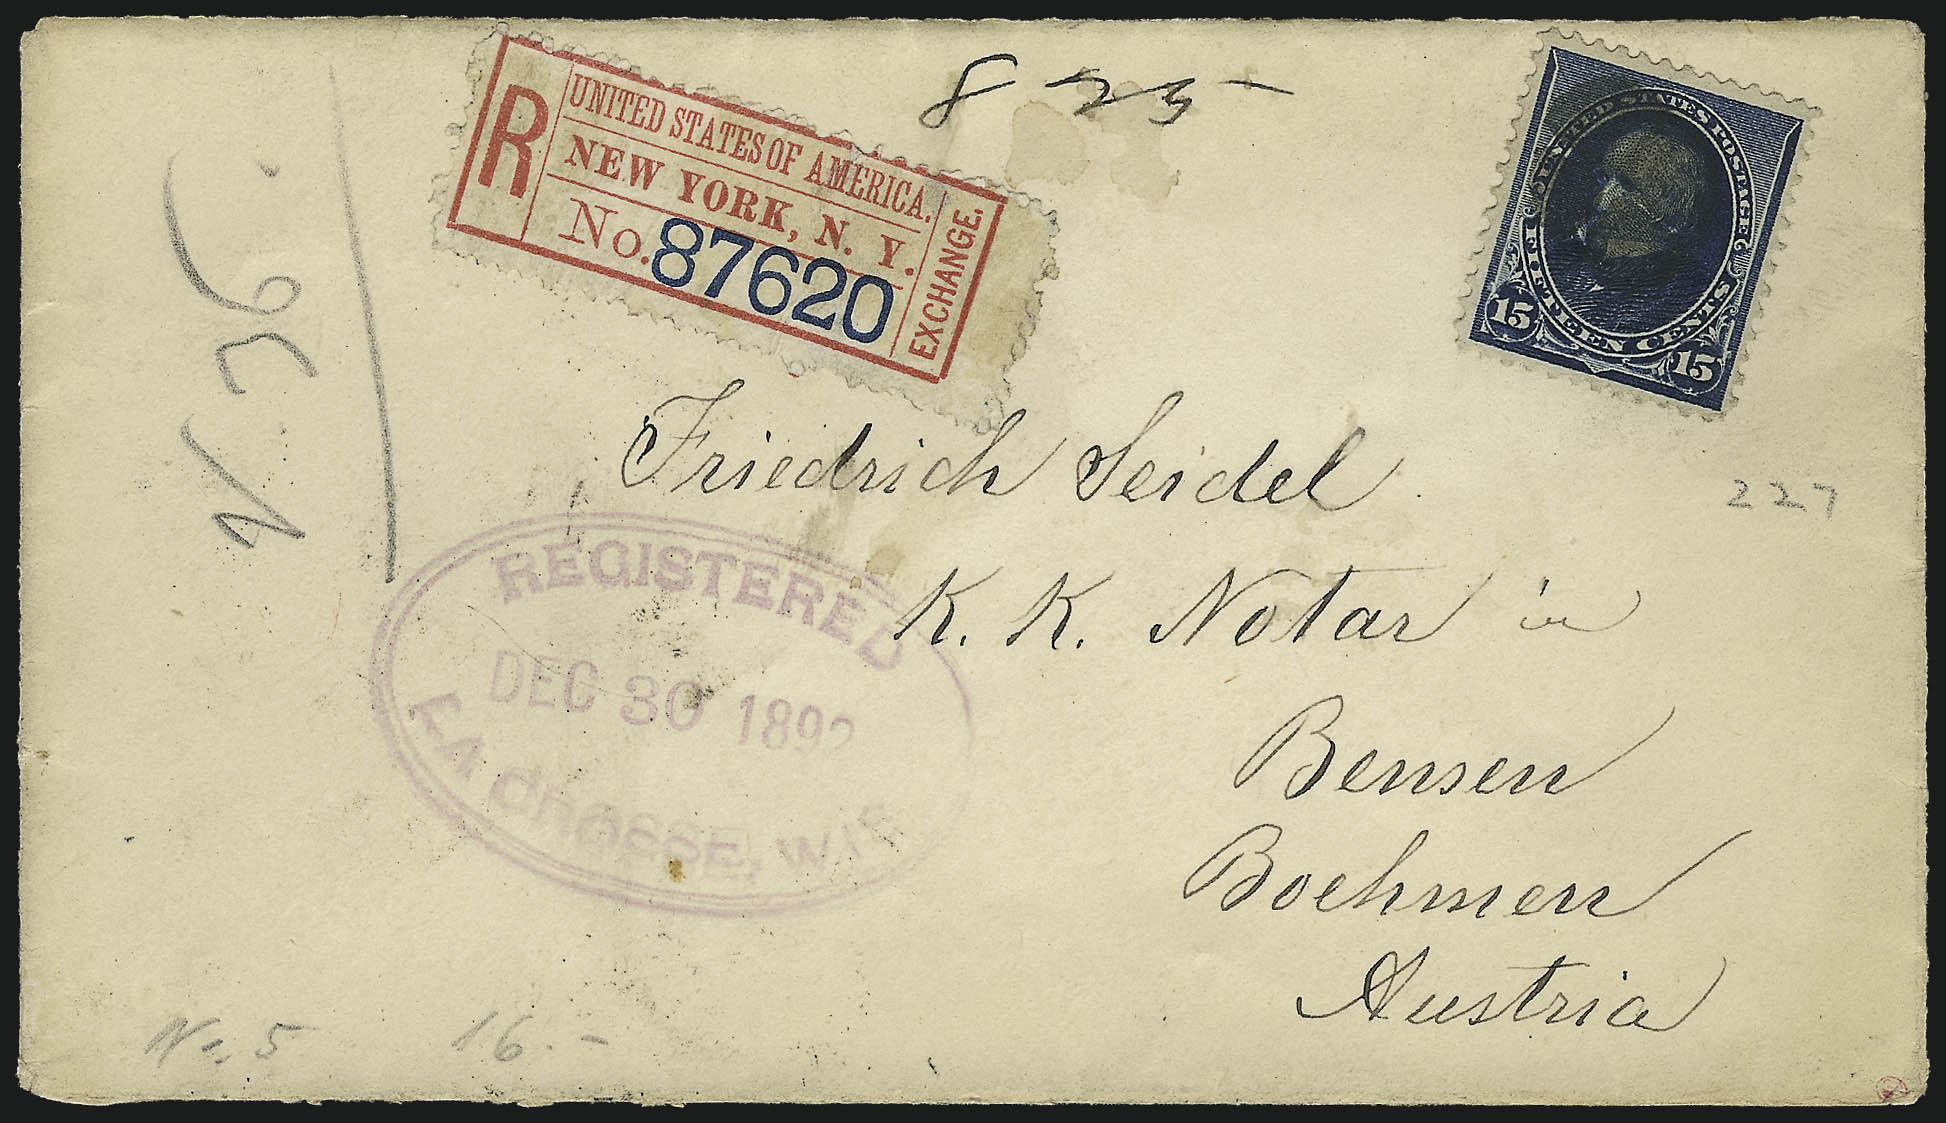 8 25-
R
UNITED STATES OF AMERICA.
NEW YORK, N. Y.
No. 87620
EXCHANGE.
UNITED STATES POSTAGE
FIFTEEN CENTS
15 15
Friedrich Seidel
227
K. K. Notar in
Bensen
Boehmen
Austria
REGISTERED
DEC 30 1892
LA CROSSE, WIS
No 5 16.-